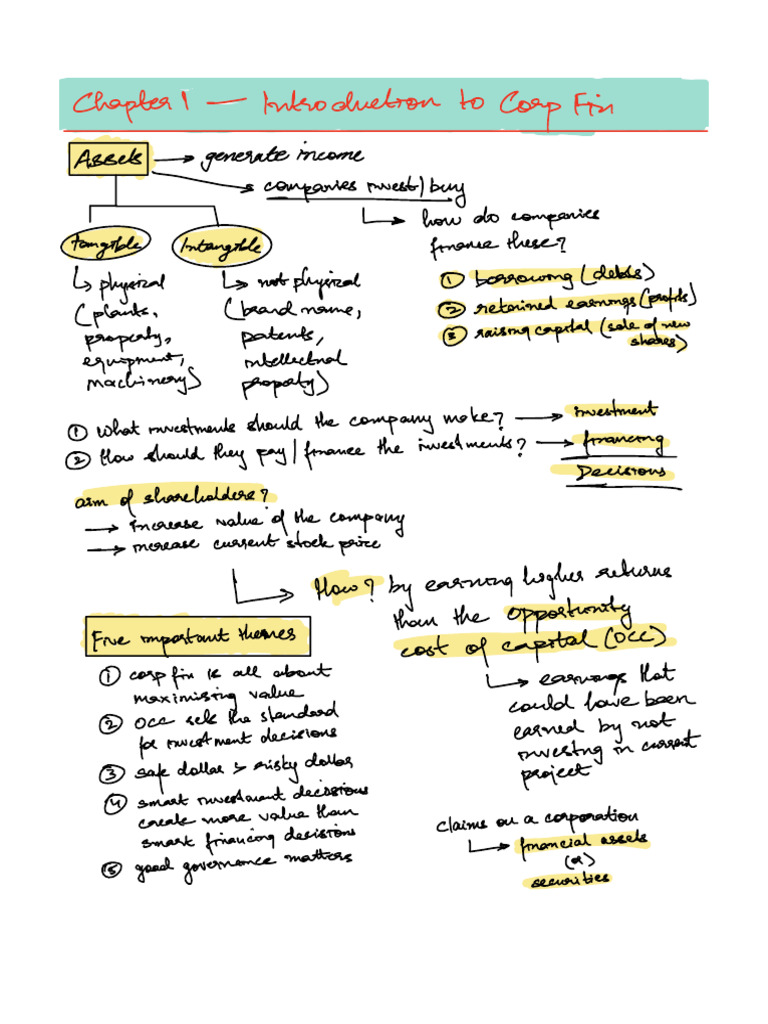 Chapter 1 — Introduction to Corp Fin
Assets → generate income
→ companies invest/buy
↳ how do companies
finance these?
① borrowing (debts)
② retained earnings (profits)
③ raising capital (sale of new
shares)
tangible
↳ physical
(plants,
property,
equipment,
machinery)
Intangible
↳ not physical
(brand name,
patents,
intellectual
property)
① What investments should the company make? → investment
② How should they pay/finance the investments? → financing
Decisions
aim of shareholders?
→ increase value of the company
→ increase current stock price
↳ How? by earning higher returns
than the opportunity
cost of capital (OCC)
↳ earnings that
could have been
earned by not
investing in current
project
Five important themes
① corp fin is all about
maximising value
② OCC sets the standard
for investment decisions
③ safe dollar > risky dollar
④ smart investment decisions
create more value than
smart financing decisions
⑤ good governance matters
claims on a corporation
↳ financial assets
(or)
securities